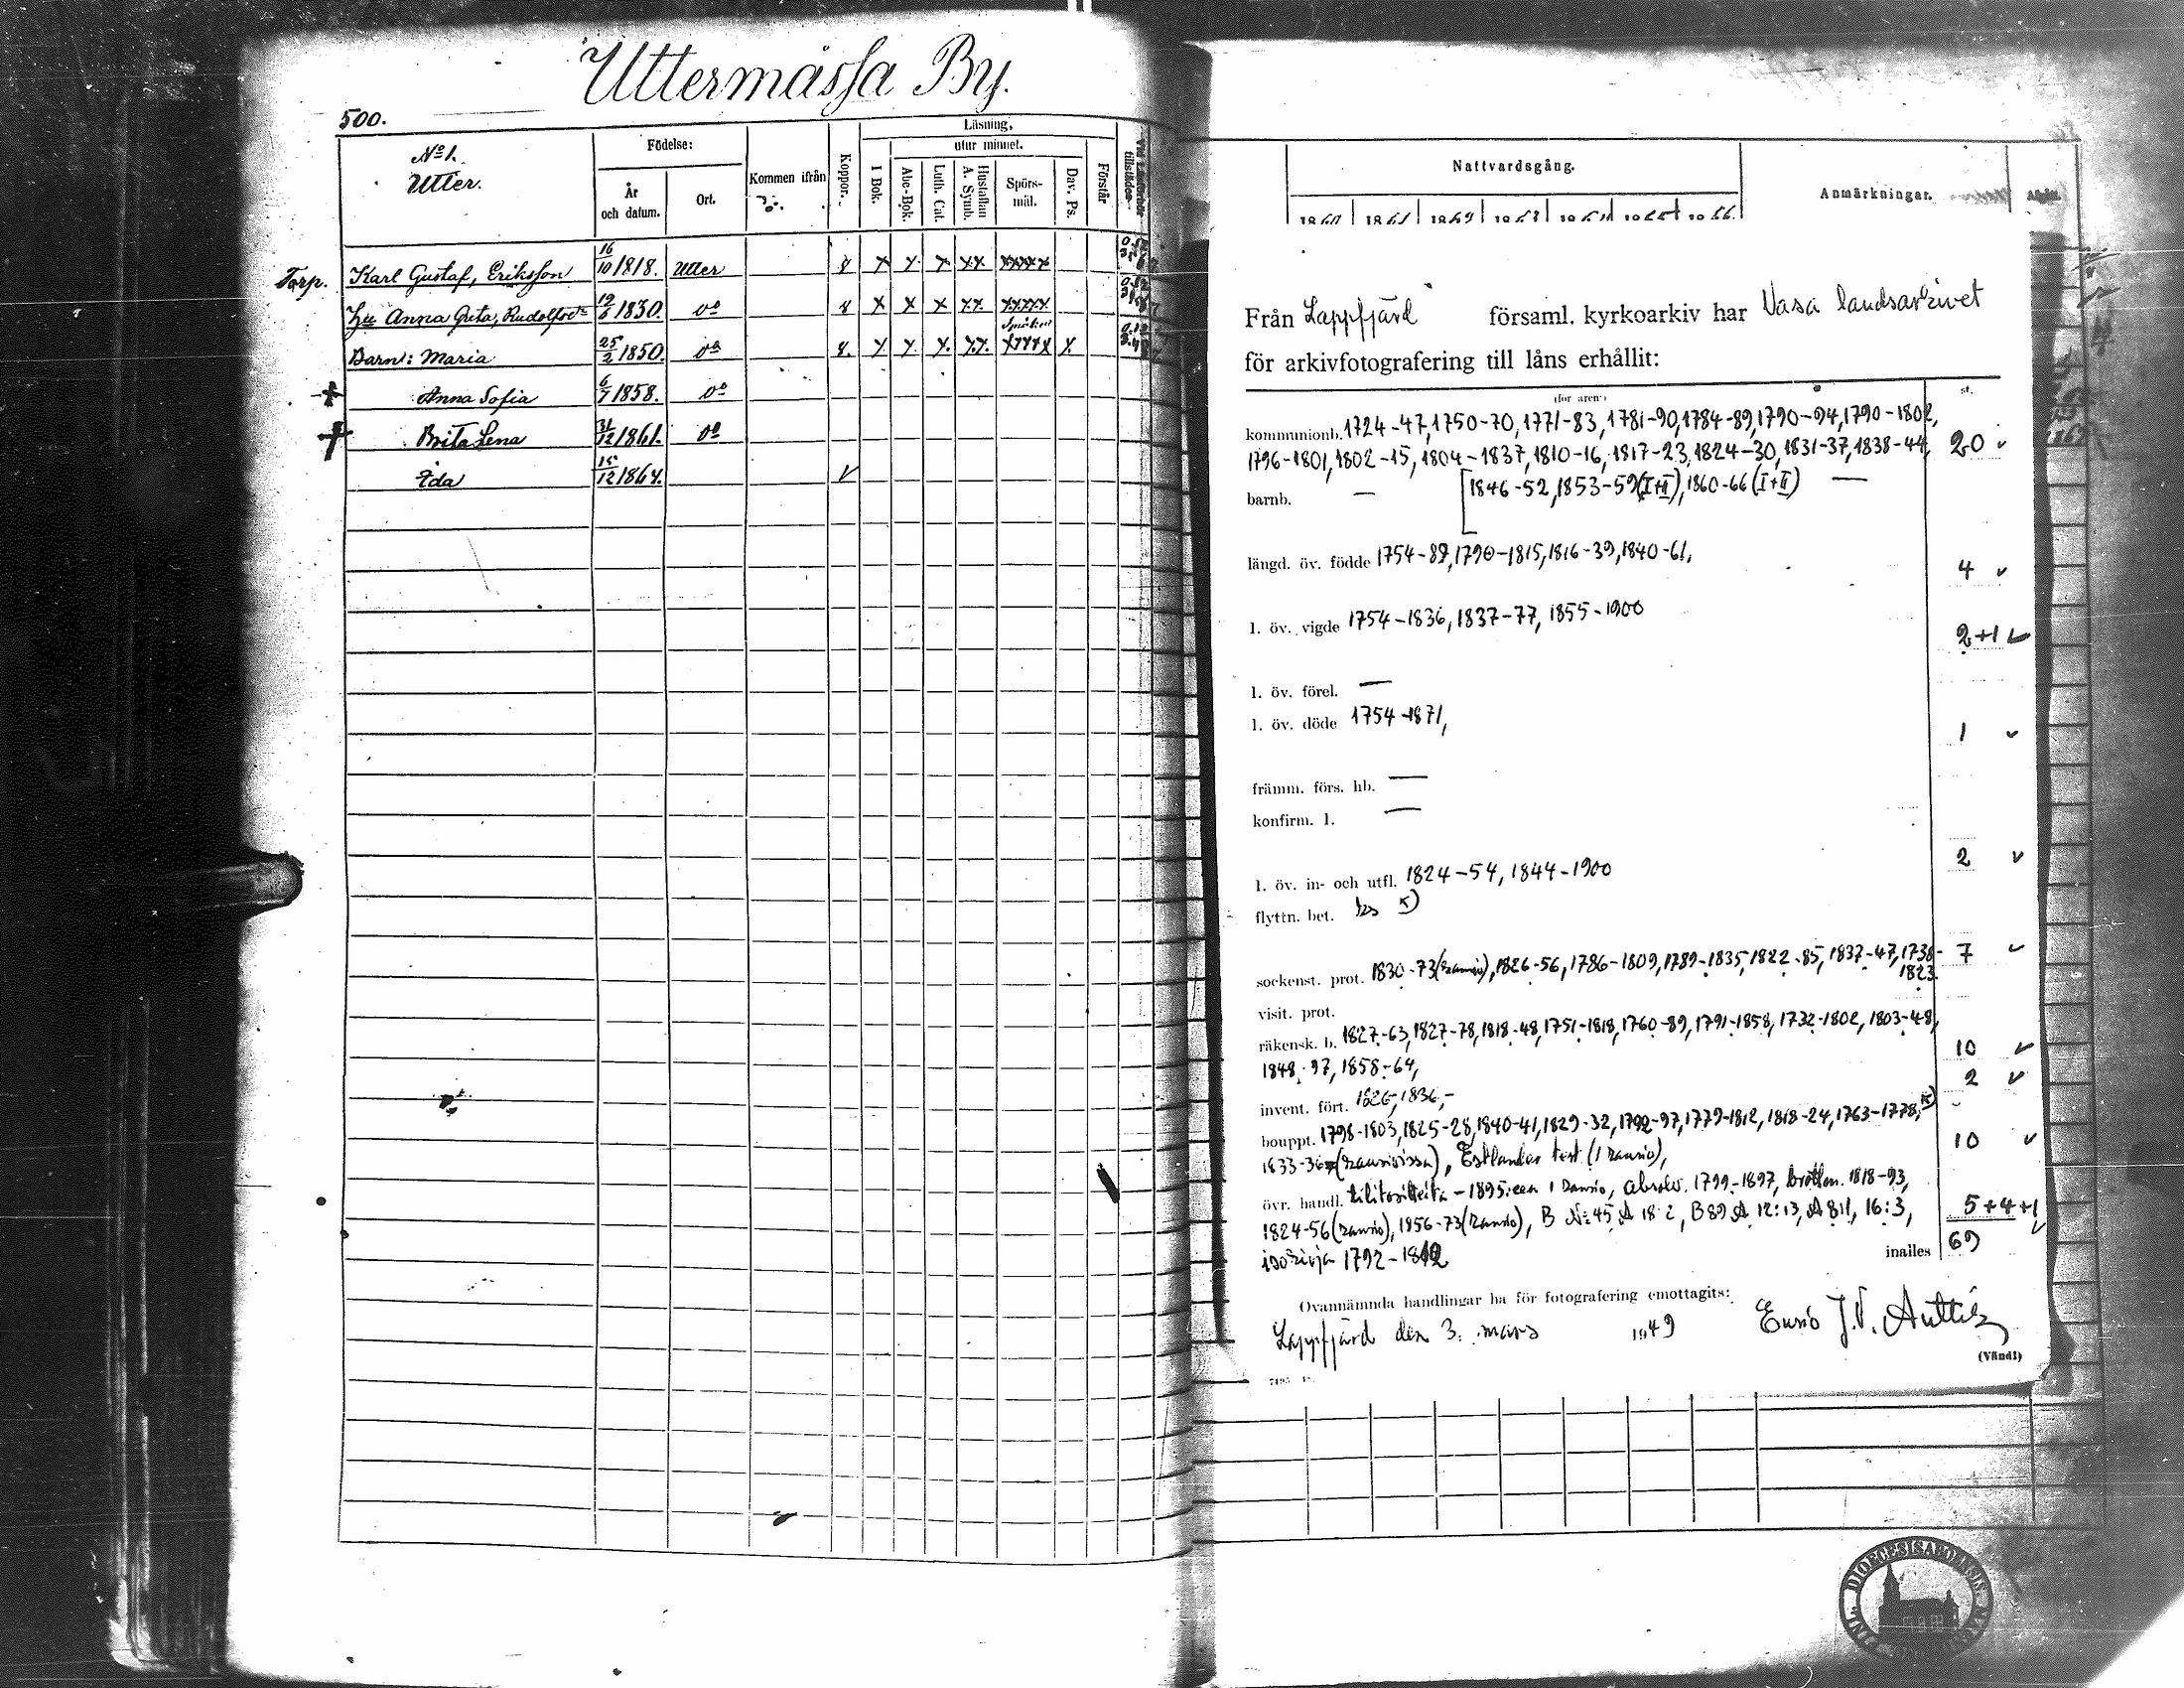 Uttermåssa By.
500.
No 1.
Utter.
Födelse:
År
och datum.
Ort.
Kommen ifrån
Koppor.
Läsning,
I Bok.
utur minnet.
Abc-Bok.
Luth. Cat.
Hustaflan
A. Symb.
Spörs-
mål.
Dav. Ps.
Förstår
Torp. Karl Gustaf, Eriksson 16/10 1818. Utter
Hu Anna Greta, Rudolfsdr 1830. do
Barn: Maria 25/2 1850. do
Anna Sofia 6/7 1858. do
Brita Lena 31/12 1861. do
Ida 15/12 1864.
Nattvardsgång.
Anmärkningar.
Från Lappfjärd församl. kyrkoarkiv har Vasa landsarkivet
för arkivfotografering till låns erhållit:
(för åren)
st.
kommunionb. 1724-47, 1750-70, 1771-83, 1781-90, 1784-89, 1790-94, 1790-1802,
1796-1801, 1802-15, 1804-1837, 1810-16, 1817-23, 1824-30, 1831-37, 1838-44, 20
barnb. — [1846-52, 1853-59 (I+II), 1860-66 (I+II) —
längd. öv. födde 1754-89, 1790-1815, 1816-39, 1840-61, 4
l. öv. vigde 1754-1836, 1837-77, 1855-1900 2+1
l. öv. förel. —
l. öv. döde 1754-1871, 1
främm. förs. hb. —
konfirm. l. —
l. öv. in- och utfl. 1824-54, 1844-1900 2
flyttn. bet.
sockenst. prot. 1830-73 (2 ), 1826-56, 1786-1809, 1789-1835, 1822-85, 1837-47, 1738- 7
1823
visit. prot.
räkensk. b. 1827-63, 1827-78, 1818-48, 1751-1818, 1760-89, 1791-1858, 1732-1802, 1803-48, 10
1848-97, 1858-64,
invent. fört. 1826-, 1836,- 2
bouppt. 1798-1803, 1825-28, 1840-41, 1829-32, 1792-97, 1779-1812, 1818-24, 1763-1778,
1833-36 Estlander test (1 ), 10
övr. handl. -1895 absolv. 1799-1897, 1818-93,
1824-56 1856-73 B No 45, A 18:2, B 89, A 12:13, A 8:11, 16:3, 5+4+1
1792-1812 inalles 69
Ovannämnda handlingar ha för fotografering emottagits:
Lappfjärd den 3. mars 1949 J.V.
(Vänd!)